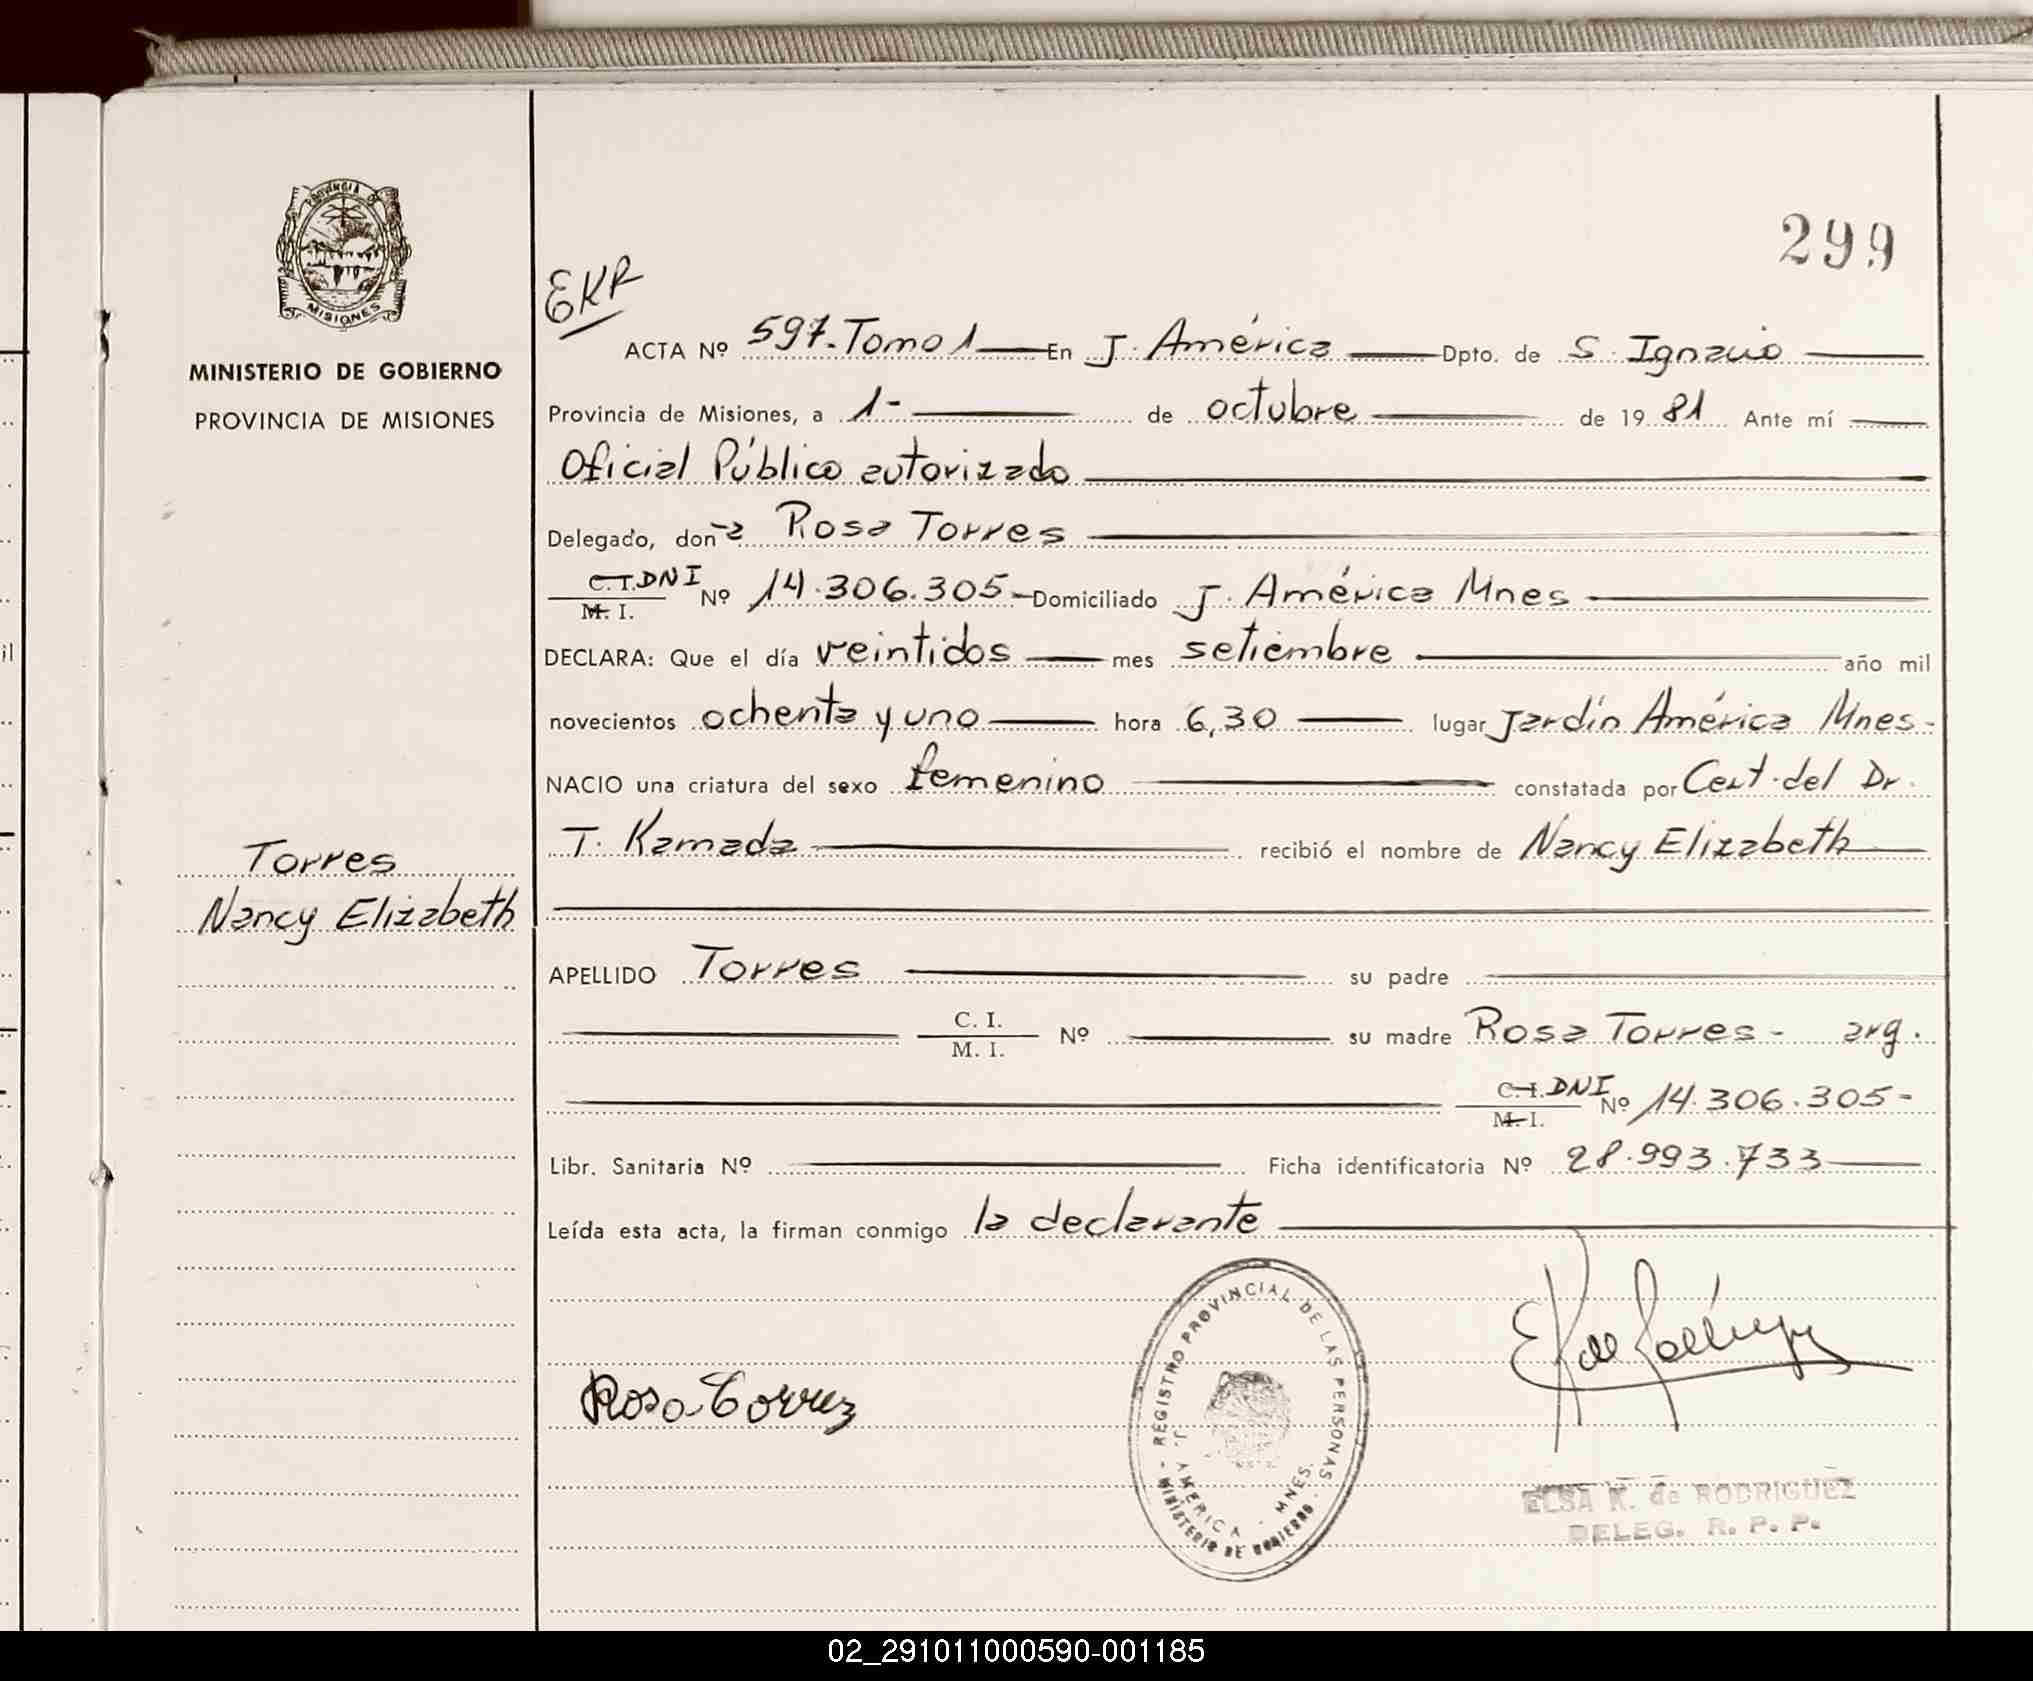 299
PROVINCIA DE
MISIONES
MINISTERIO DE GOBIERNO
PROVINCIA DE MISIONES
EKR
ACTA Nº 597. Tomo 1 En J. América Dpto. de S. Ignacio
Provincia de Misiones, a 1- de octubre de 1981 Ante mí
Oficial Público autorizado
Delegado, don-a Rosa Torres
C. I. DNI
M. I. Nº 14.306.305- Domiciliado J. América Mnes
DECLARA: Que el día veintidos mes setiembre año mil
novecientos ochenta y uno hora 6,30 lugar Jardín América Mnes-
NACIO una criatura del sexo femenino constatada por Cert. del Dr.
T. Kamada recibió el nombre de Nancy Elizabeth
Torres
Nancy Elizabeth
APELLIDO Torres su padre
C. I.
M. I. Nº su madre Rosa Torres- arg.
C. I. DNI
M. I. Nº 14.306.305-
Libr. Sanitaria Nº Ficha identificatoria Nº 28.993.733
Leída esta acta, la firman conmigo la declarante
Rosa Torrez
- REGISTRO PROVINCIAL DE LAS PERSONAS -
J. AMERICA - MNES.
MINISTERIO DE GOBIERNO
E K de Rodríguez
ELSA K. de RODRIGUEZ
DELEG. R. P. P.
il
02_291011000590-001185